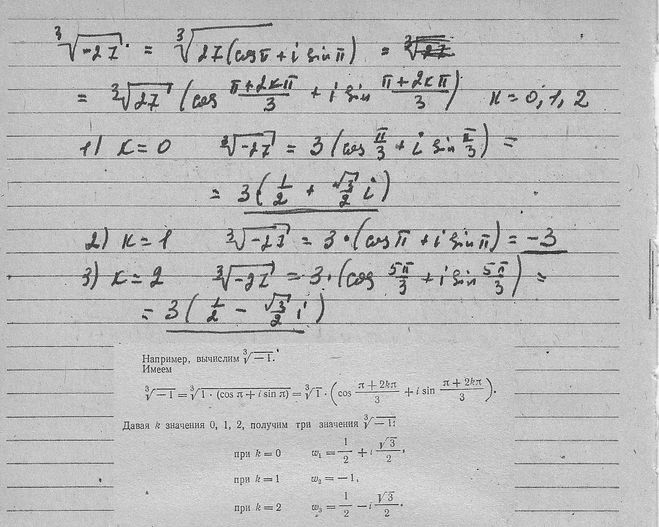 ∛-27 = ∛27(cos π + i sin π) =
= ∛27 (cos (π+2kπ)/3 + i sin (π+2kπ)/3) k=0,1,2
1) k=0 ∛-27 = 3(cos π/3 + i sin π/3) =
= 3(1/2 + √3/2 i)
2) k=1 ∛-27 = 3·(cos π + i sin π) = -3
3) k=2 ∛-27 = 3·(cos 5π/3 + i sin 5π/3) =
= 3(1/2 - √3/2 i)
Например, вычислим ∛-1.
Имеем
∛-1 = ∛1·(cos π + i sin π) = ∛1 · (cos (π+2kπ)/3 + i sin (π+2kπ)/3).
Давая k значения 0, 1, 2, получим три значения ∛-1:
при k=0 w₁ = 1/2 + i √3/2,
при k=1 w₂ = -1,
при k=2 w₃ = 1/2 - i √3/2.